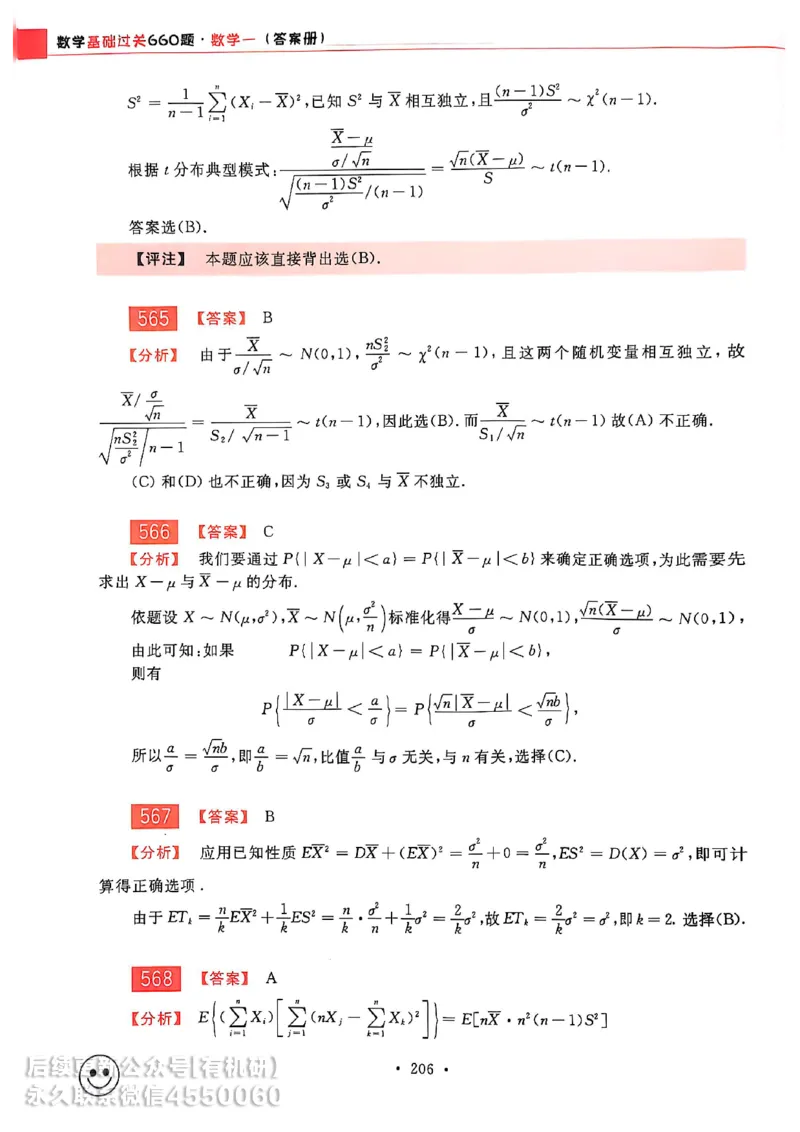 数学基础过关660题·数学一(答案册)
S² = \frac{1}{n-1}\sum_{i=1}^{n}(X_i-\overline{X})²,已知 S² 与 \overline{X} 相互独立,且\frac{(n-1)S²}{σ²} ~ χ²(n-1).
根据 t 分布典型模式:\frac{\frac{\overline{X}-μ}{σ/\sqrt{n}}}{\sqrt{\frac{(n-1)S²}{σ²}/(n-1)}} = \frac{\sqrt{n}(\overline{X}-μ)}{S} ~ t(n-1).
答案选(B).
【评注】 本题应该直接背出选(B).
565 【答案】 B
【分析】 由于\frac{\overline{X}}{σ/\sqrt{n}} ~ N(0,1), \frac{nS_2^2}{σ²} ~ χ²(n-1), 且这两个随机变量相互独立, 故
\frac{\overline{X}/\frac{σ}{\sqrt{n}}}{\sqrt{\frac{nS_2^2}{σ²}/n-1}} = \frac{\overline{X}}{S_2/\sqrt{n-1}} ~ t(n-1),因此选(B).而\frac{\overline{X}}{S_1/\sqrt{n}} ~ t(n-1) 故(A) 不正确.
(C) 和(D) 也不正确,因为 S₃ 或 S₄ 与 \overline{X} 不独立.
566 【答案】 C
【分析】 我们要通过 P{|X-μ|<a} = P{|\overline{X}-μ|<b} 来确定正确选项,为此需要先
求出 X-μ 与 \overline{X}-μ 的分布.
依题设 X ~ N(μ,σ²),\overline{X} ~ N(μ,\frac{σ²}{n})标准化得\frac{X-μ}{σ} ~ N(0,1),\frac{\sqrt{n}(\overline{X}-μ)}{σ} ~ N(0,1),
由此可知:如果 P{|X-μ|<a} = P{|\overline{X}-μ|<b},
则有
P{\frac{|X-μ|}{σ} < \frac{a}{σ}} = P{\frac{\sqrt{n}|\overline{X}-μ|}{σ} < \frac{\sqrt{n}b}{σ}},
所以\frac{a}{σ} = \frac{\sqrt{n}b}{σ},即\frac{a}{b} = \sqrt{n},比值\frac{a}{b} 与 σ 无关,与 n 有关,选择(C).
567 【答案】 B
【分析】 应用已知性质 E\overline{X}² = D\overline{X} + (E\overline{X})² = \frac{σ²}{n} + 0 = \frac{σ²}{n},ES² = D(X) = σ²,即可计
算得正确选项.
由于 ET_k = \frac{n}{k}E\overline{X}² + \frac{1}{k}ES² = \frac{n}{k}·\frac{σ²}{n} + \frac{1}{k}σ² = \frac{2}{k}σ²,故 ET_k = \frac{2}{k}σ² = σ²,即 k = 2. 选择(B).
568 【答案】 A
【分析】 E{(\sum_{i=1}^{n}X_i)[\sum_{j=1}^{n}(nX_j-\sum_{k=1}^{n}X_k)²]} = E[n\overline{X}·n²(n-1)S²]
·206·
后续更新公众号[有机研]
永久联系微信4550060